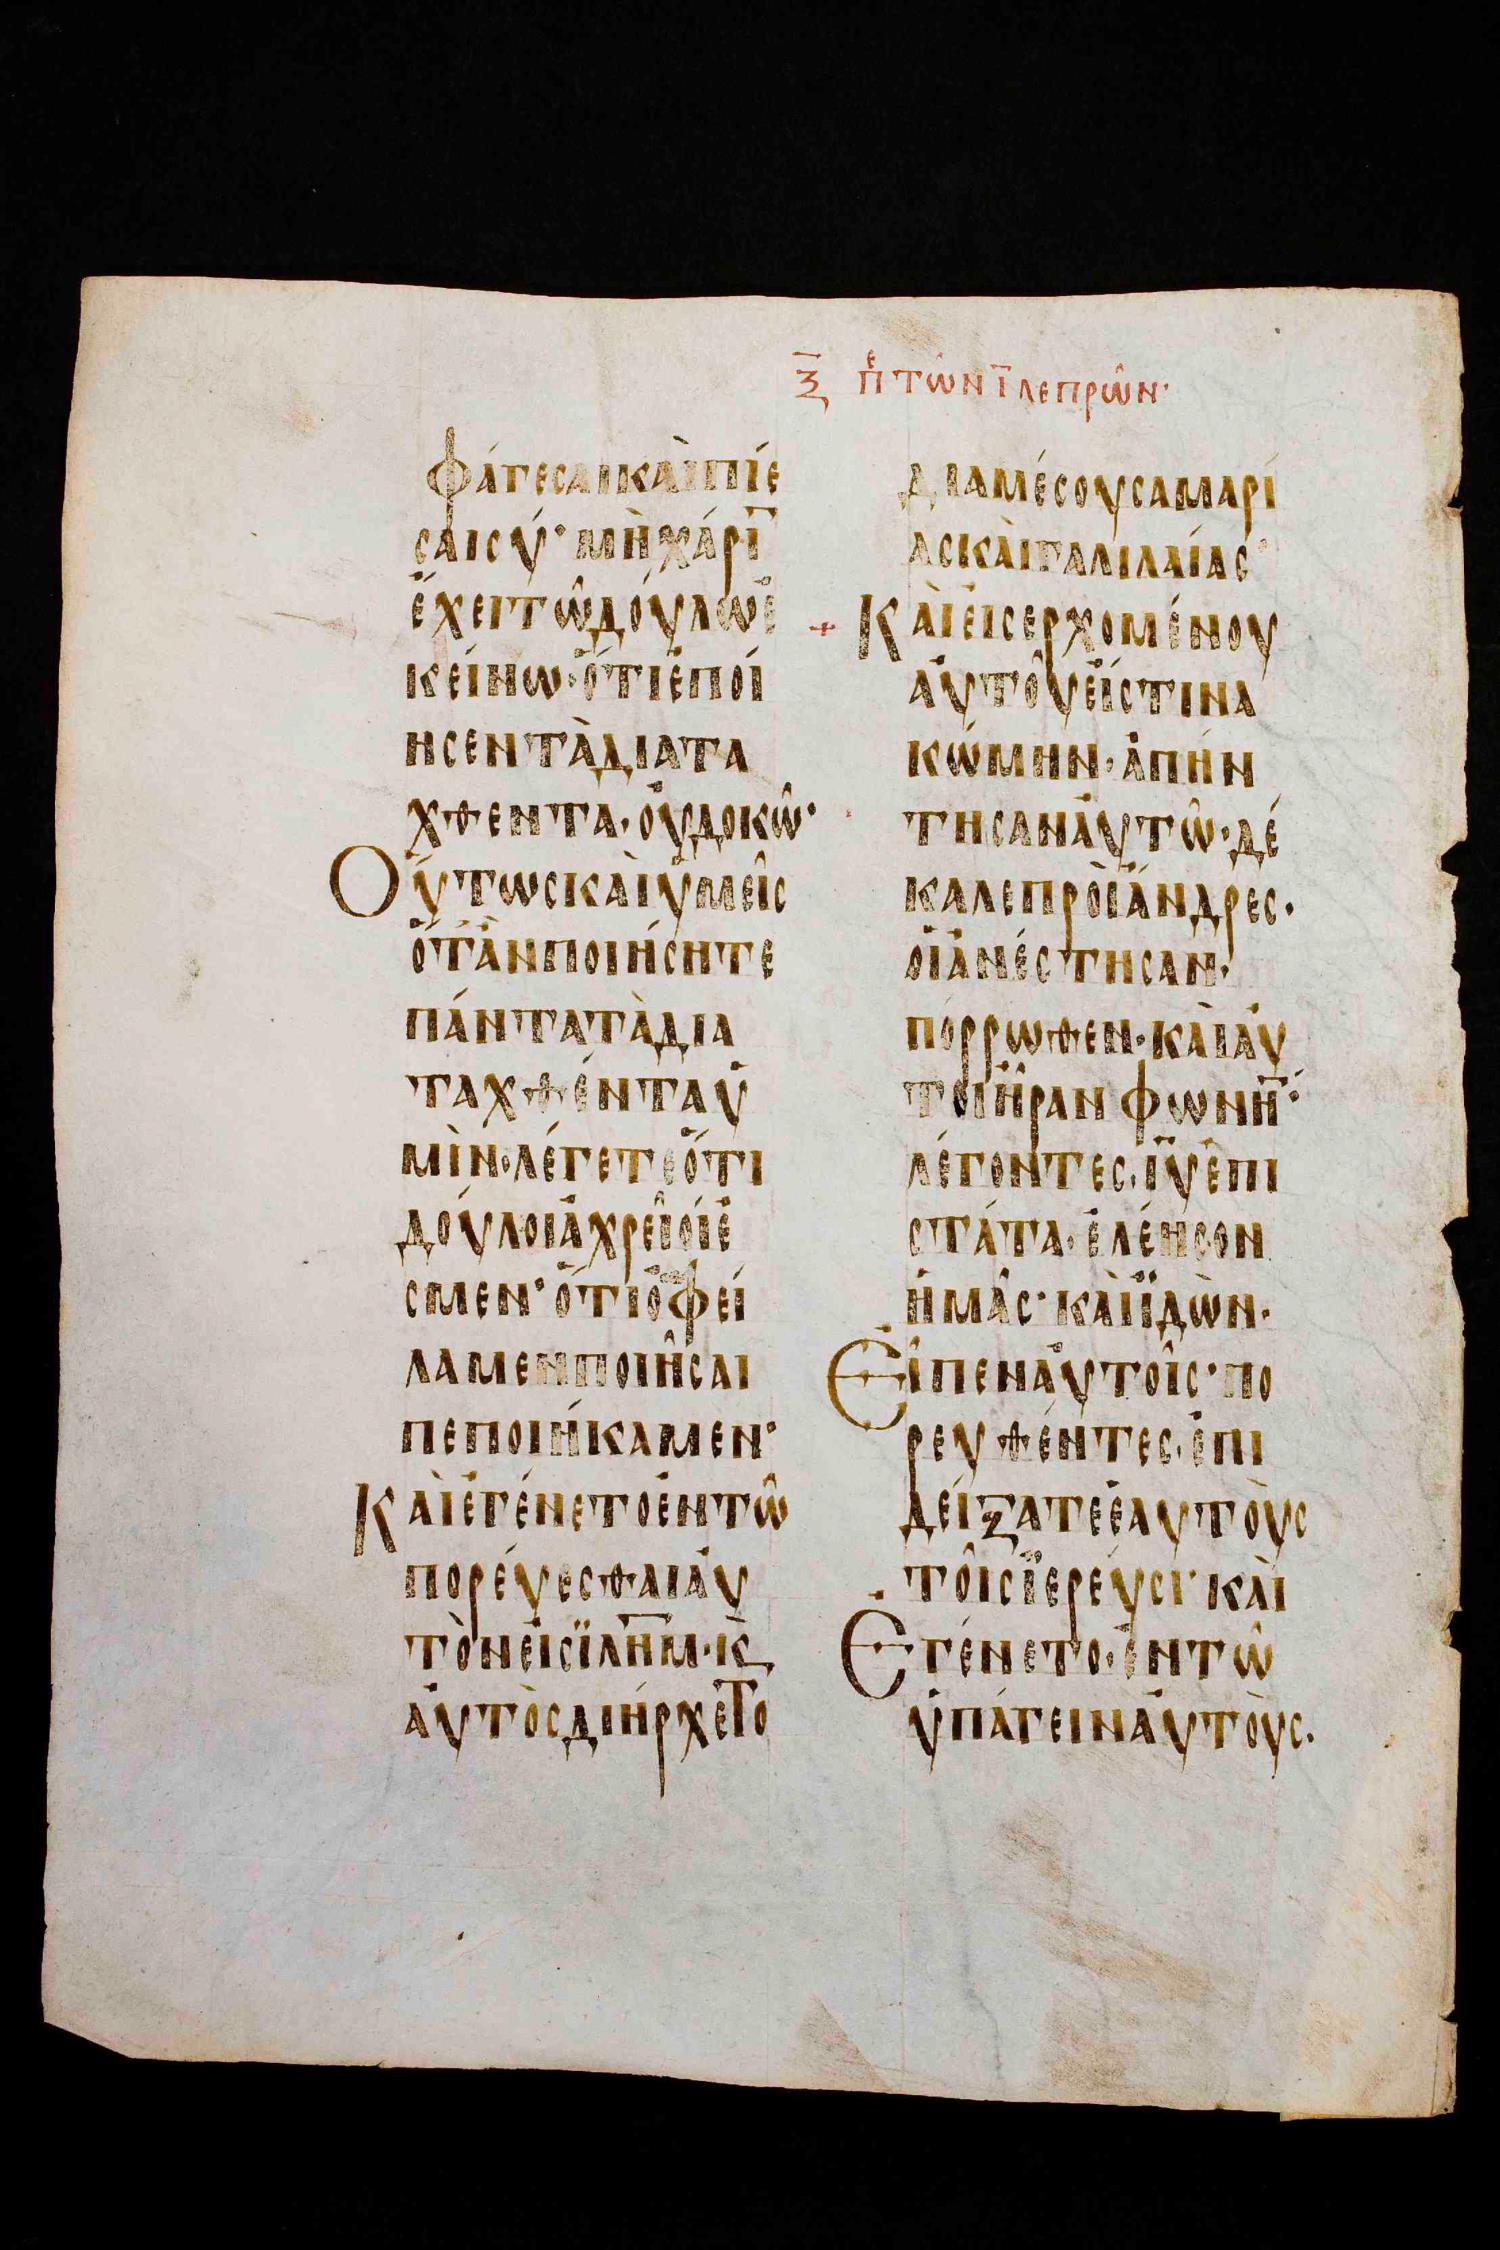 ξ̄ π̔ε τῶν ῑ λεπρῶν·
φάγεσαικαὶπίε
σαισύ· μὴχάρῑ
ἔχειτῶδούλωἐ
κείνω·ὅτιἐποί
ησεντὰδιατα
χθεντα·οὐδοκῶ·
Οὕτωςκαὶὑμεῖς
ὅτὰνποιήσητε
πάντατὰδια
ταχθένταὑ
μὶν·λέγετεὅτι
δούλοιἀχρεῖοίἐ
σμεν· ὅτιὀφεί
λαμενποιῆσαι
πεποιήκαμεν·
Καὶἐγένετοἐντῶ
πορέυεσθαιἀυ
τὸνεἰςϊλη̄μ·κ̀
ἀυτὸςδιήρχετο
διαμέσουσαμαρί
ασκαὶγαλιλαίας·
+ Καὶεἰσερχομένου
ἀυτοῦεἴςτινα
κώμην·ἀπήν
τησανἀυτῶ·δέ
καλεπρὸιἄνδρες·
ὁϊἀνέστησαν·
πόρρωθεν·καὶἀυ
τοιἦρανφωνὴ̄·
λέγοντες·ῑῡἐπι
στάτα·ἐλέησον
ἡμᾶς·καὶϊδὼν·
Εἶπεναὐτοῖς·πο
ρευθέντες·ἐπι
δείξατεἑαυτοὺς
τοῖςϊερέυσι·καὶ
Ἐγένετο·ἐντῶ
ὑπάγεινἀυτοὺς·